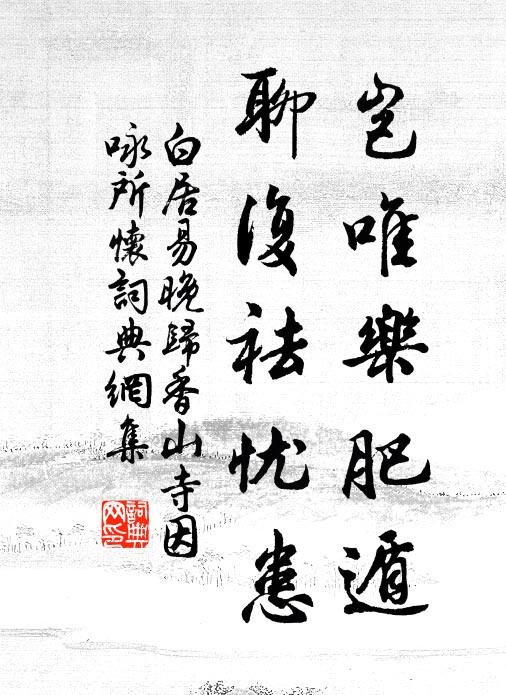 豈唯樂肥遁
聊復祛忧患
白居易晚歸香山寺因
咏所懷詞典網集
詞典
网印